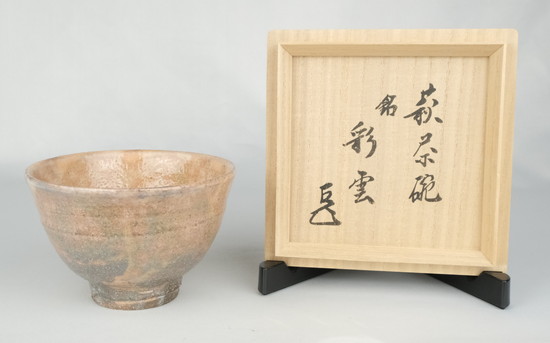 萩茶碗
銘
彩雲